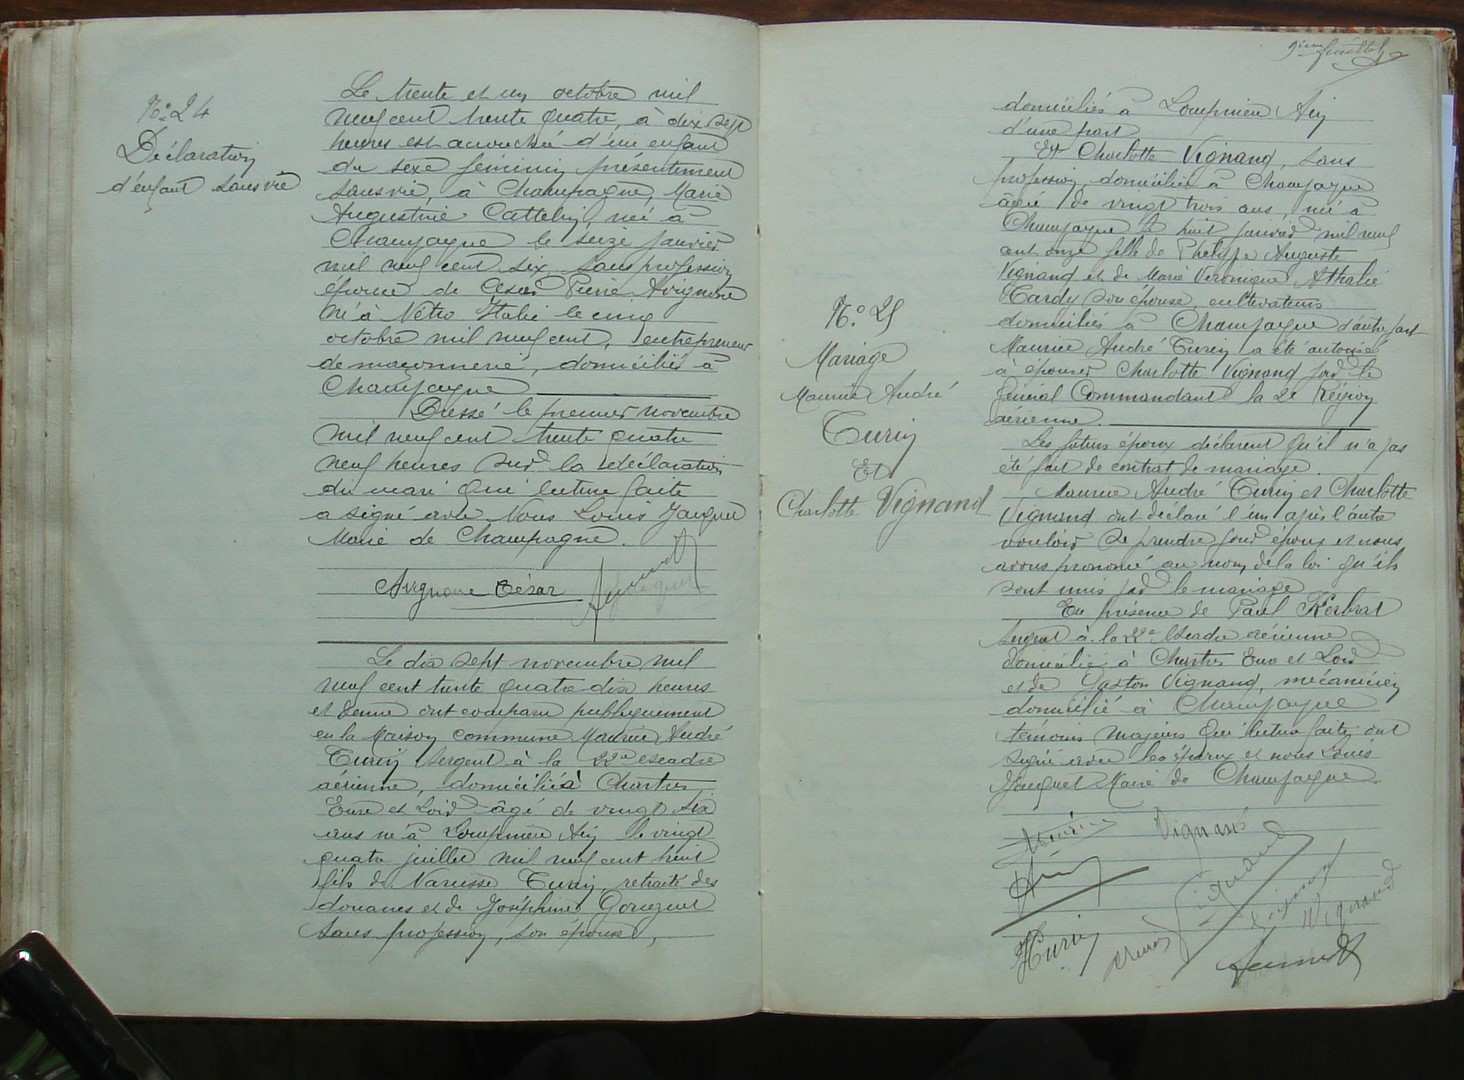 N° 24
Déclaration
d'enfant sans vie
Le trente et un octobre mil
neuf cent trente quatre, à dix sept
heures est accouchée d'un enfant
du sexe féminin présentement
sans vie, à Champagne, Marie
Augustine Cattelin, née à
Champagne le seize janvier
mil neuf cent six sans profession
épouse de César Pierre Avignone
né à Nétro Italie le cinq
octobre mil neuf cent, entrepreneur
de maçonnerie, domiciliés à
Champagne
Dressé le premier novembre
mil neuf cent trente quatre
neuf heures sur la déclaration
du mari qui lecture faite
a signé avec Nous Louis Jacquet
Maire de Champagne.
Avignone César
Le dix sept novembre mil
neuf cent trente quatre dix heures
et demie ont comparu publiquement
en la Maison commune Maurice André
Turin Sergent à la 22e escadre
aérienne, domicilié à Chartres
Eure et Loir âgé de vingt six
ans né à Lompnieu Ain le vingt
quatre juillet mil neuf cent huit
fils de Narcisse Turin, retraité des
douanes et de Joséphine
sans profession, son épouse,
9ième feuillet
N° 25
Mariage
Maurice André
Turin
Et
Charlotte Vignand
domiciliés à Lompnieu Ain
d'une part
Et Charlotte Vignand, sans
profession, domiciliée à Champagne
âgée de vingt trois ans, née à
Champagne le huit janvier mil neuf
cent onze fille de Philippe Auguste
Vignand et de Marie Véronique Athalie
Cardy son épouse, cultivateurs
domiciliés à Champagne d'autre part
Maurice André Turin a été autorisé
à épouser Charlotte Vignand par le
Général Commandant la 2e Région
aérienne.
Les futurs époux déclarent qu'il n'a pas
été fait de contrat de mariage.
Maurice André Turin et Charlotte
Vignand ont déclaré l'un après l'autre
vouloir se prendre pour époux et nous
avons prononcé au nom de la loi qu'ils
sont unis par le mariage
En présence de Paul Kerbrat
Sergent à la 22e Escadre aérienne
domicilié à Chartres Eure et Loir
et de Gaston Vignand, mécanicien
domicilié à Champagne
témoins majeurs qui lecture faite, ont
signé avec les époux et nous Louis
Jacquet Maire de Champagne.
Vignand
Vignand
Turin
Vignand